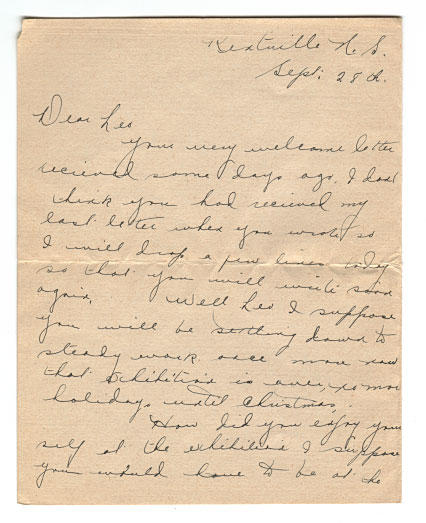 Kentville N. S.
Sept. 28th.
Dear Leo
Your very welcome letter
recieved some days ago. I dont
think you had recieved my
last letter when you wrote so
I will drop a few lines today
so that you will write soon
again. Well Leo I suppose
you will be settling down to
steady work once more now
that Exhibition is over, no more
holidays until Christmas.
How did you enjoy your
self at the exhibition I suppose
you would have to be at the